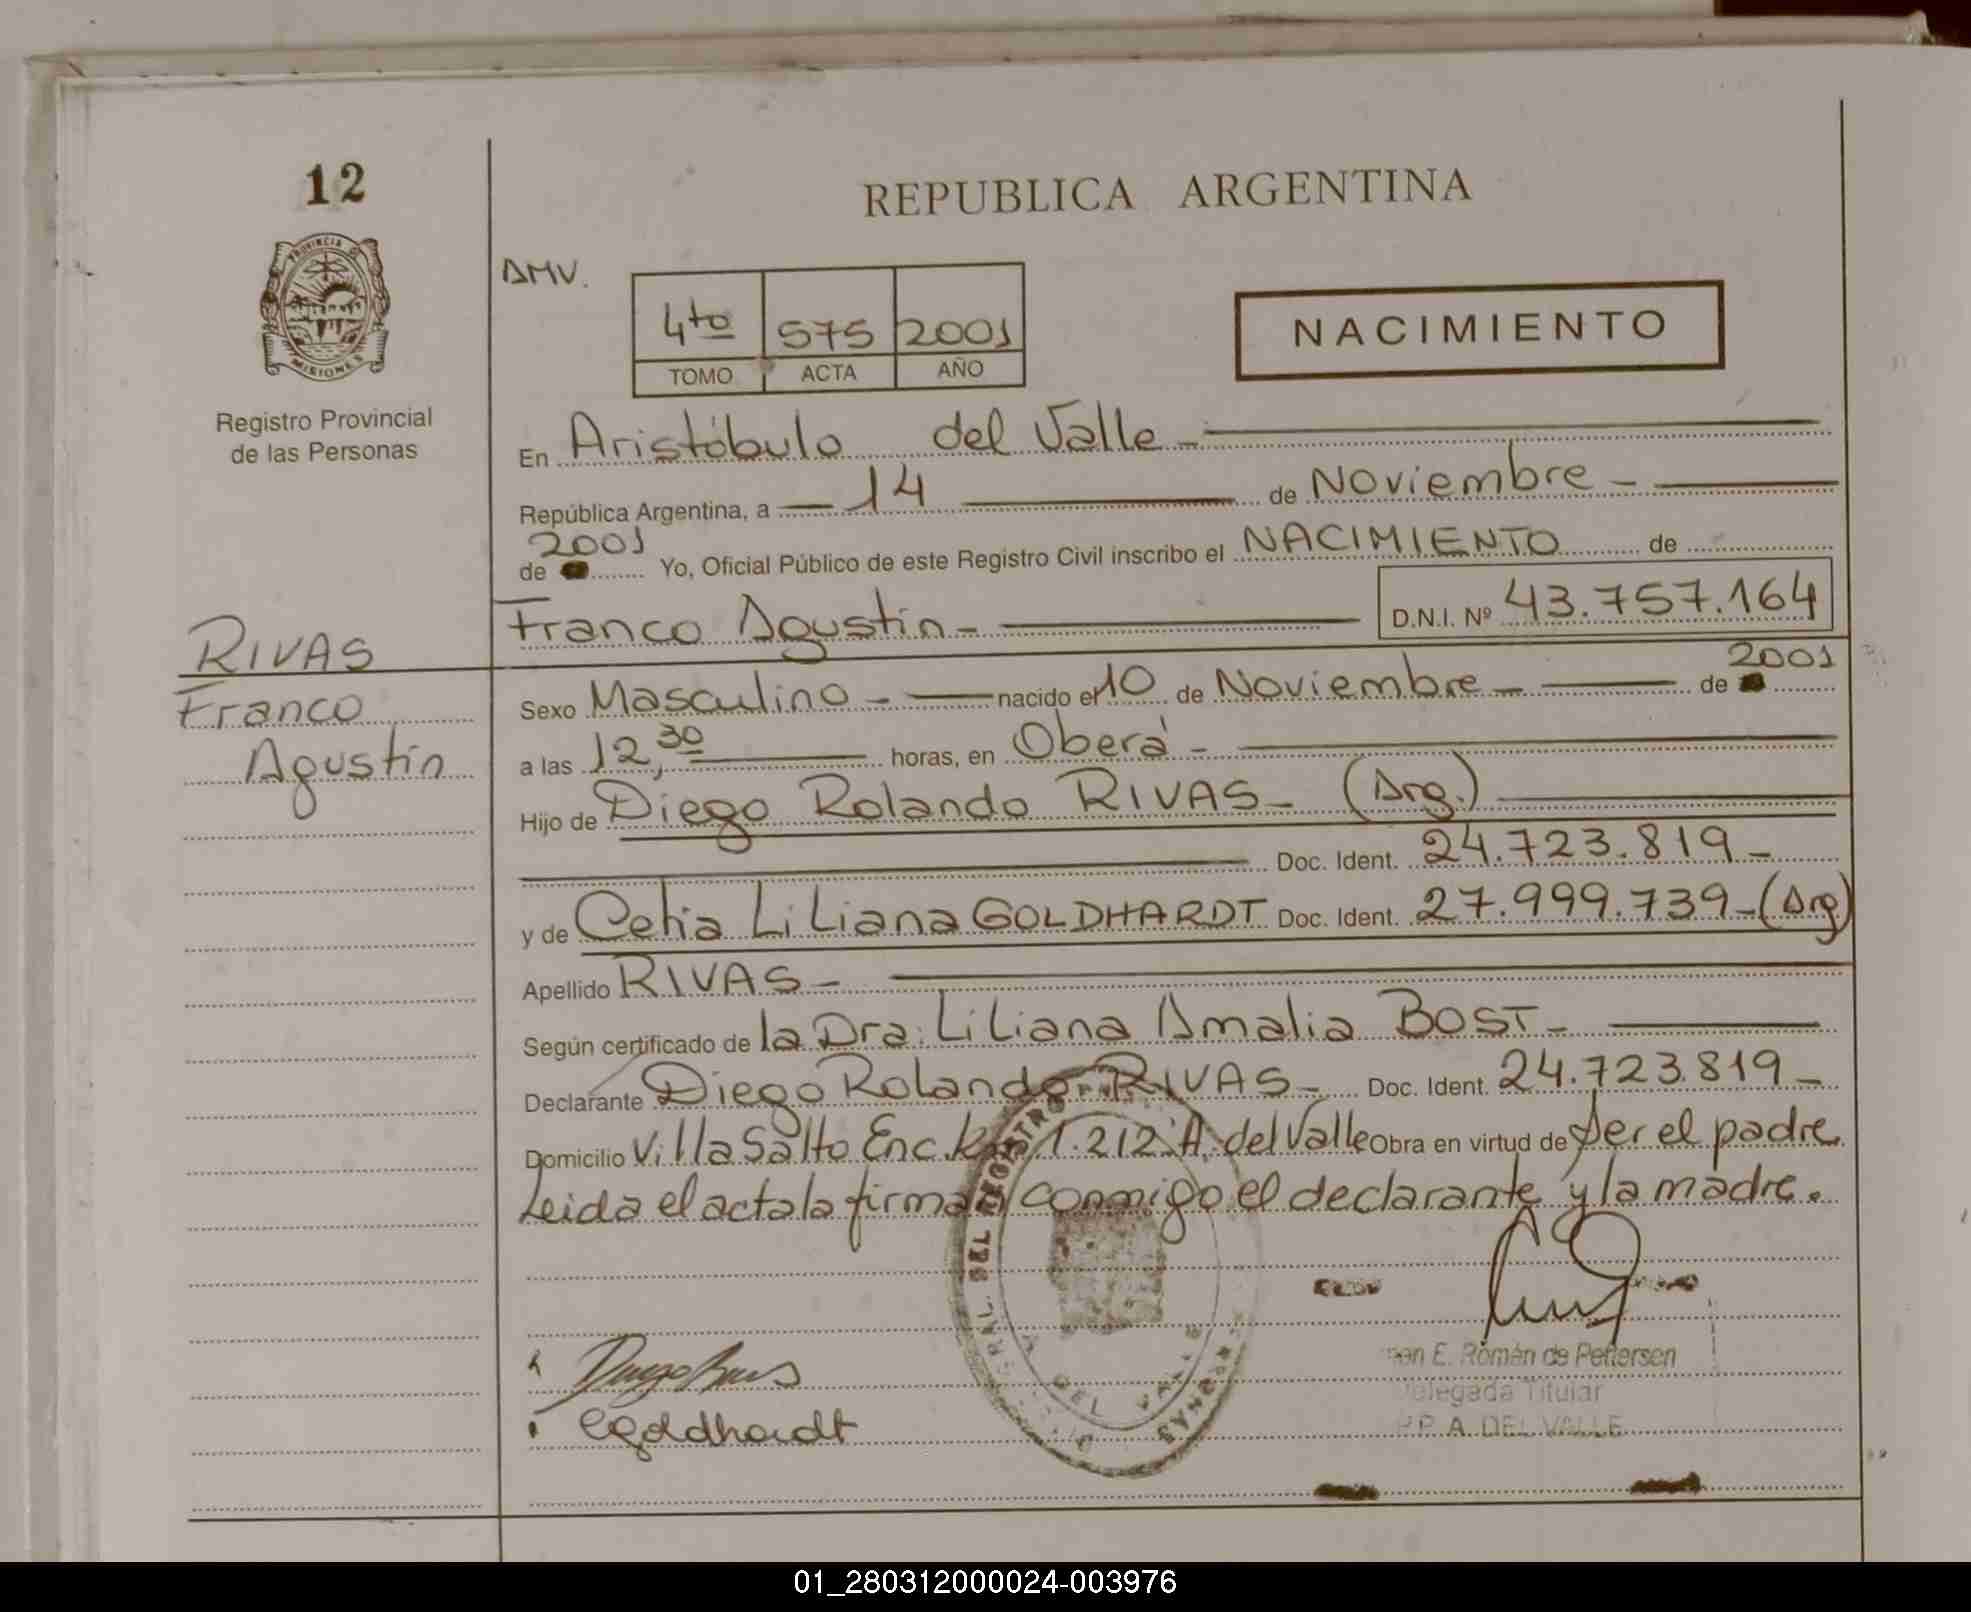 12
REPUBLICA ARGENTINA
PROVINCIA D
MISIONES
Registro Provincial
de las Personas
AMV.
4to 575 2001
TOMO ACTA AÑO
NACIMIENTO
En Aristóbulo del Valle -
República Argentina, a 14 de Noviembre -
de 2001 Yo, Oficial Público de este Registro Civil inscribo el NACIMIENTO de
Franco Agustín - D.N.I. Nº 43.757.164
RIVAS
Franco
Agustín
Sexo Masculino - nacido el 10 de Noviembre - de 2001
a las 12,30 horas, en Oberá -
Hijo de Diego Rolando RIVAS - (Arg.)
Doc. Ident. 24.723.819 -
y de Celia Liliana GOLDHARDT Doc. Ident. 27.999.739 - (Arg)
Apellido RIVAS -
Según certificado de la Dra. Liliana Amalia BOST -
Declarante Diego Rolando RIVAS - Doc. Ident. 24.723.819 -
Domicilio Villa Salto Enc. Km 1.212 A. del Valle Obra en virtud de ser el padre.
Leida el acta la firman conmigo el declarante y la madre.
DEL REGISTRO
DEL VALLE
E. Román de Pettersen
Delegada Titular
A. DEL VALLE
Diego Rivas
CGoldhardt
01_280312000024-003976